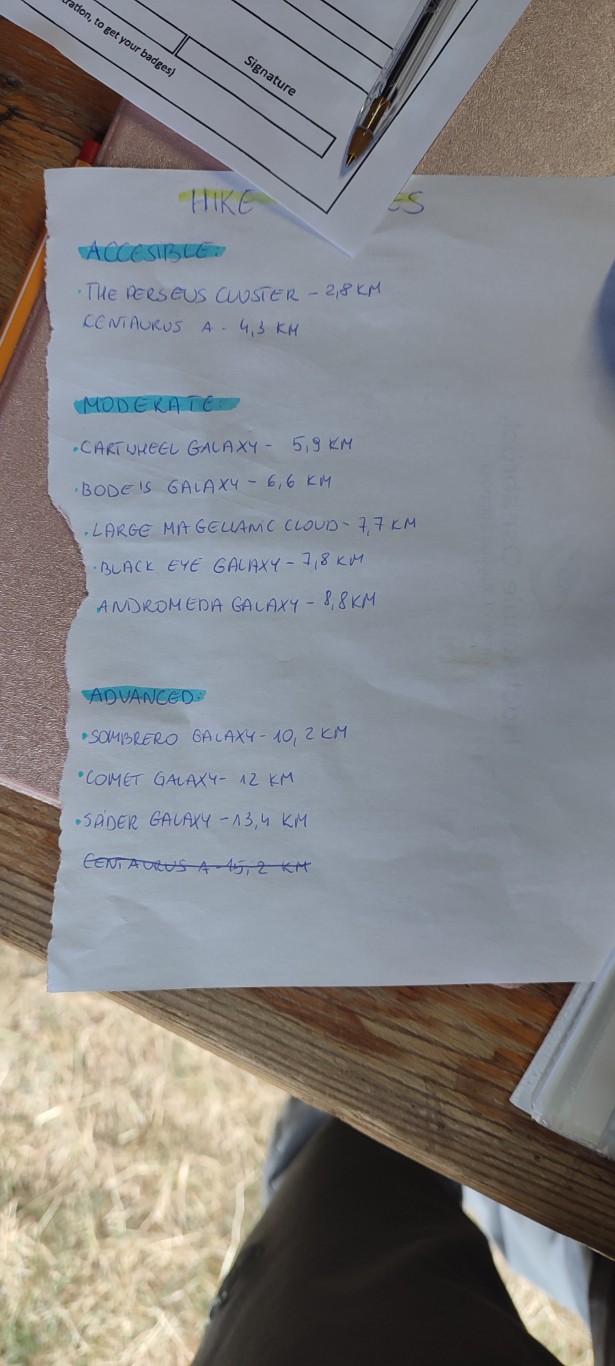 ration, to get your badges)
Signature
HIKE ES
ACCESIBLE:
·THE PERSEUS CLUSTER – 2,8 KM
CENTAURUS A - 4,3 KM
MODERATE:
·CARTWHEEL GALAXY - 5,9 KM
·BODE'S GALAXY - 6,6 KM
·LARGE MAGELLANIC CLOUD - 7,7 KM
·BLACK EYE GALAXY - 7,8 KM
ANDROMEDA GALAXY - 8,8 KM
ADVANCED:
·SOMBRERO GALAXY - 10,2 KM
·COMET GALAXY - 12 KM
·SPIDER GALAXY - 13,4 KM
CENTAURUS A - 15,2 KM